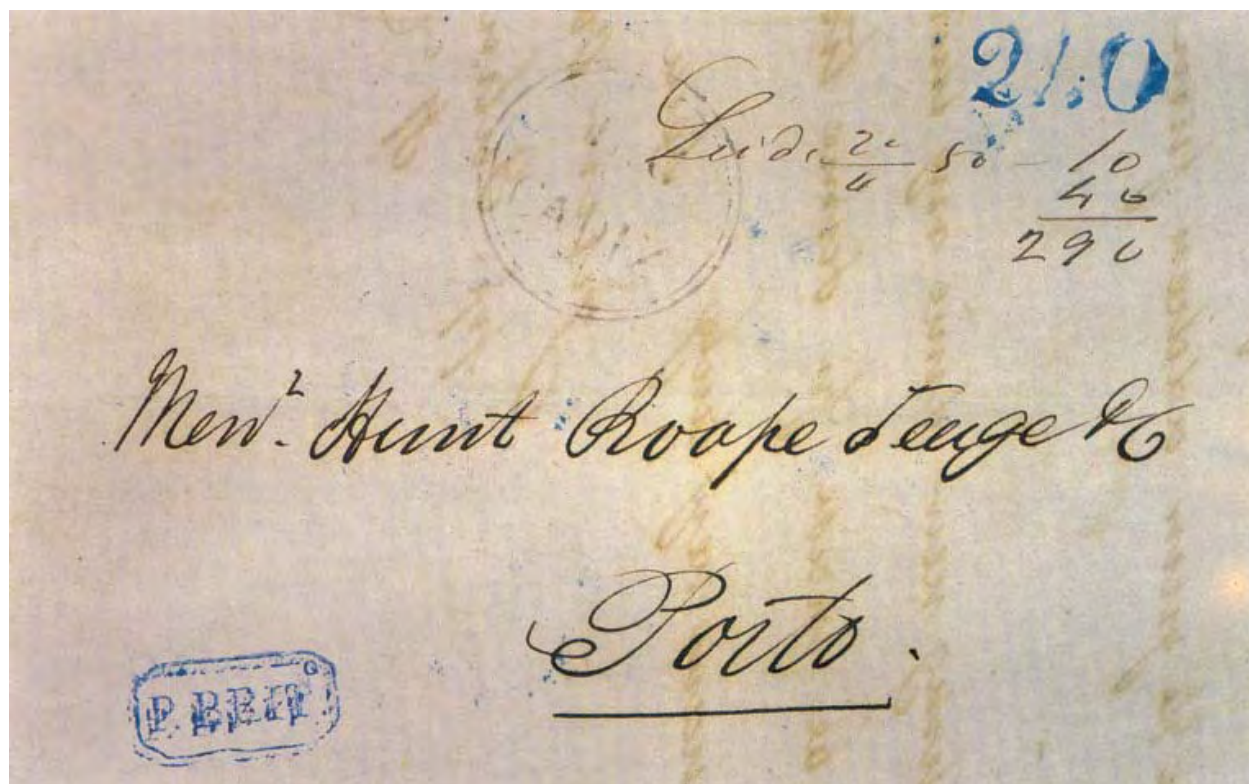 240
20 50 – 10
40
290
CADIZ
Hunt Roope Teage & C
Porto.
P. BRIT